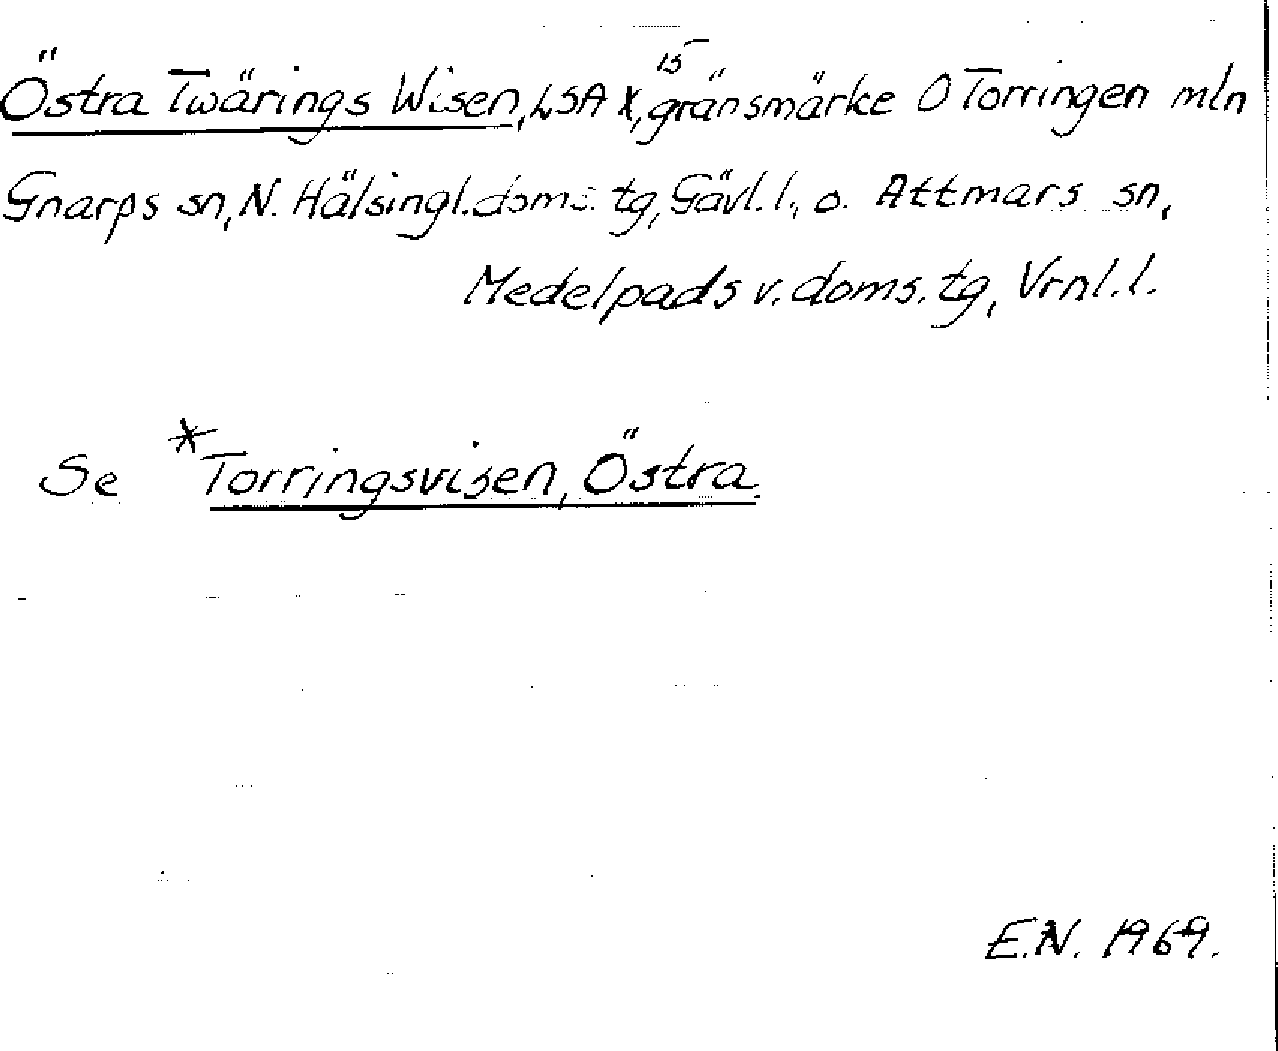 Östra Twärings Wisen, LSA X, 15 gränsmärke O Torringen mln
Gnarps sn, N. Hälsingl. doms. tg, Gävl. l., o. Attmars sn,
Medelpads v. doms. tg, Vrnl. l.
Se *Torringsvisen, Östra.
E.N. 1969.